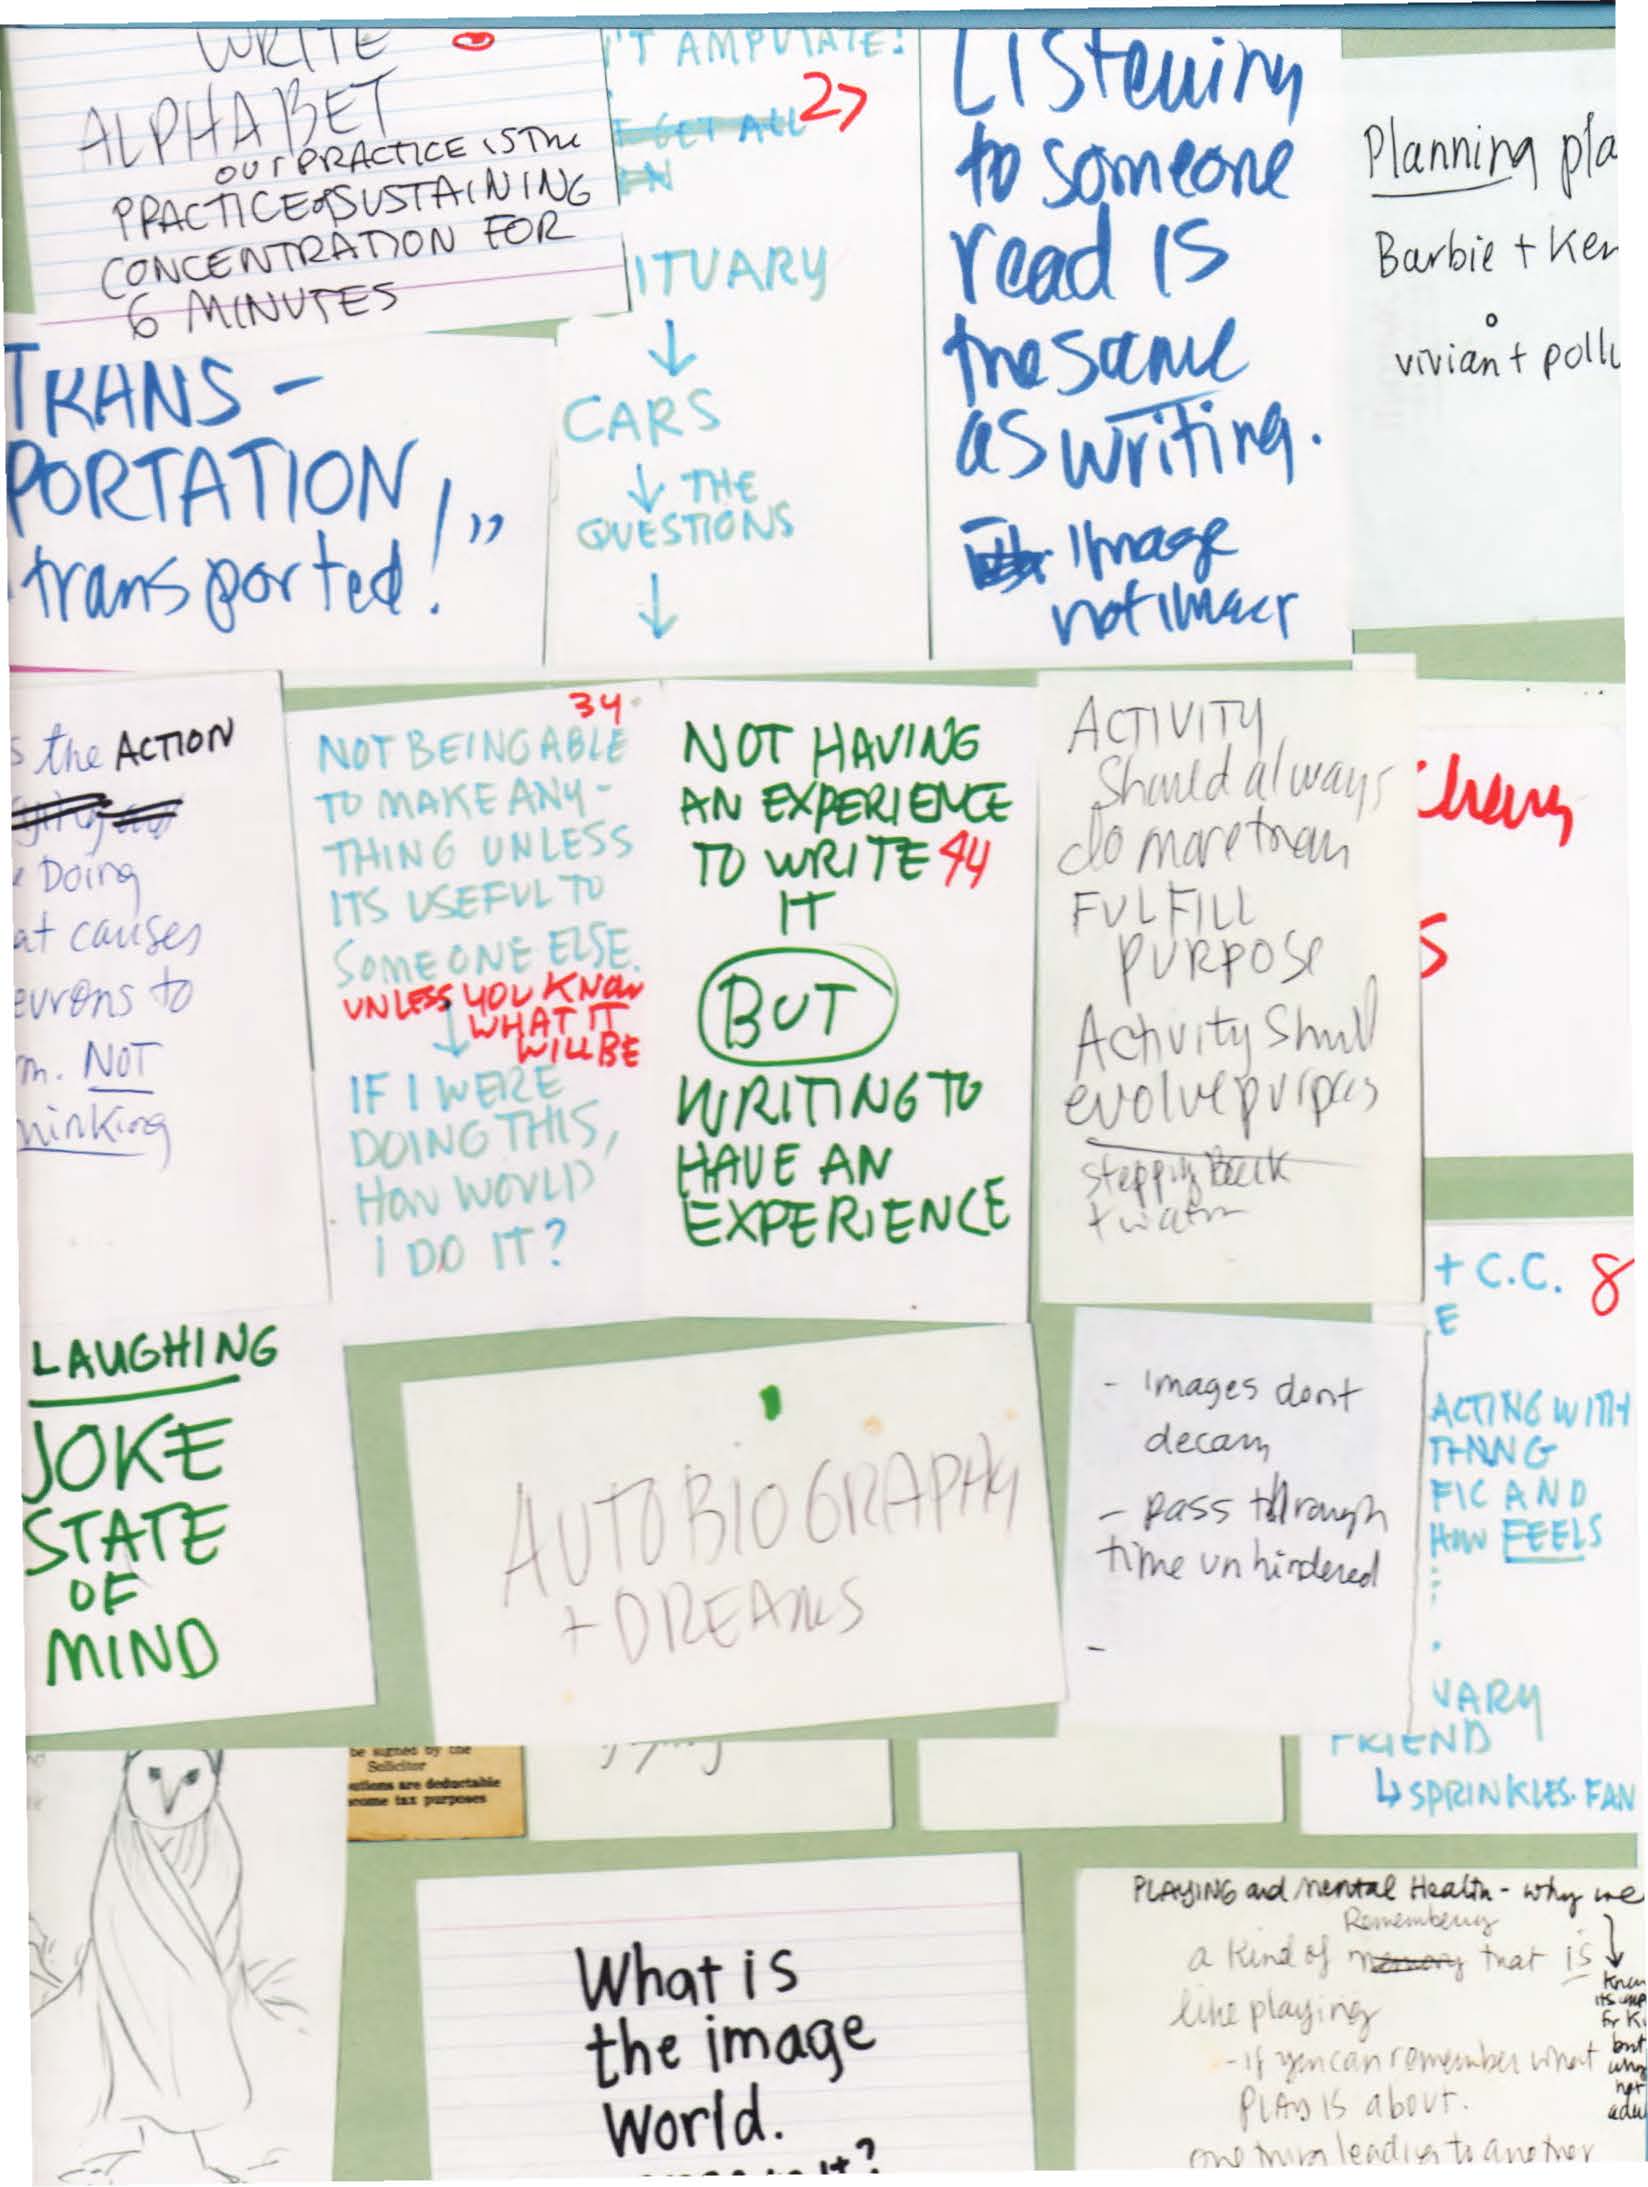 WRITE
ALPHABET
OUR PRACTICE IS The
PRACTICE of SUSTAINING
CONCENTRATION FOR
6 MINUTES
'T AMPUTATE!
27
GET ALL
ITUARY
↓
CARS
↓ THE
QUESTIONS
↓
Listening
to someone
read is
the same
as writing.
Image
not
Planning pla
Barbie + Ken
vivian + poll
TRANS-
PORTATION
transported!"
s the ACTION
e Doing
at causes
eurons to
m. NOT
hinking
34
NOT BEING ABLE
TO MAKE ANY-
THING UNLESS
ITS USEFUL TO
SOMEONE ELSE.
UNLESS YOU KNOW
WHAT IT
WILL BE
↓
IF I WERE
DOING THIS,
HOW WOULD
I DO IT?
NOT HAVING
AN EXPERIENCE
TO WRITE 44
IT
BUT
WRITING TO
HAVE AN
EXPERIENCE
ACTIVITY
Should always
do more than
FULFILL
PURPOSE
Activity
evolve
Stepping Back
s
+ C.C. 8
E
ACTING WITH
THING
FIC AND
HOW FEELS
VARY
FRIEND
↳ SPRINKLES. FAN
LAUGHING
JOKE
STATE
OF
MIND
AUTOBIOGRAPHY
+ DREAMS
- Images dont
decay
- pass through
time unhindered
-
be signed by the
Solicitor
utions are deductable
ncome tax purposes
What is
the image
World.
it?
PLAYING and Mental Health - why we
Remembering
a kind of memory that is
like playing
- if you can remember what
PLAY IS about.
one thing leading to another
↓
Know
its imp
for K
but
why
not
adu